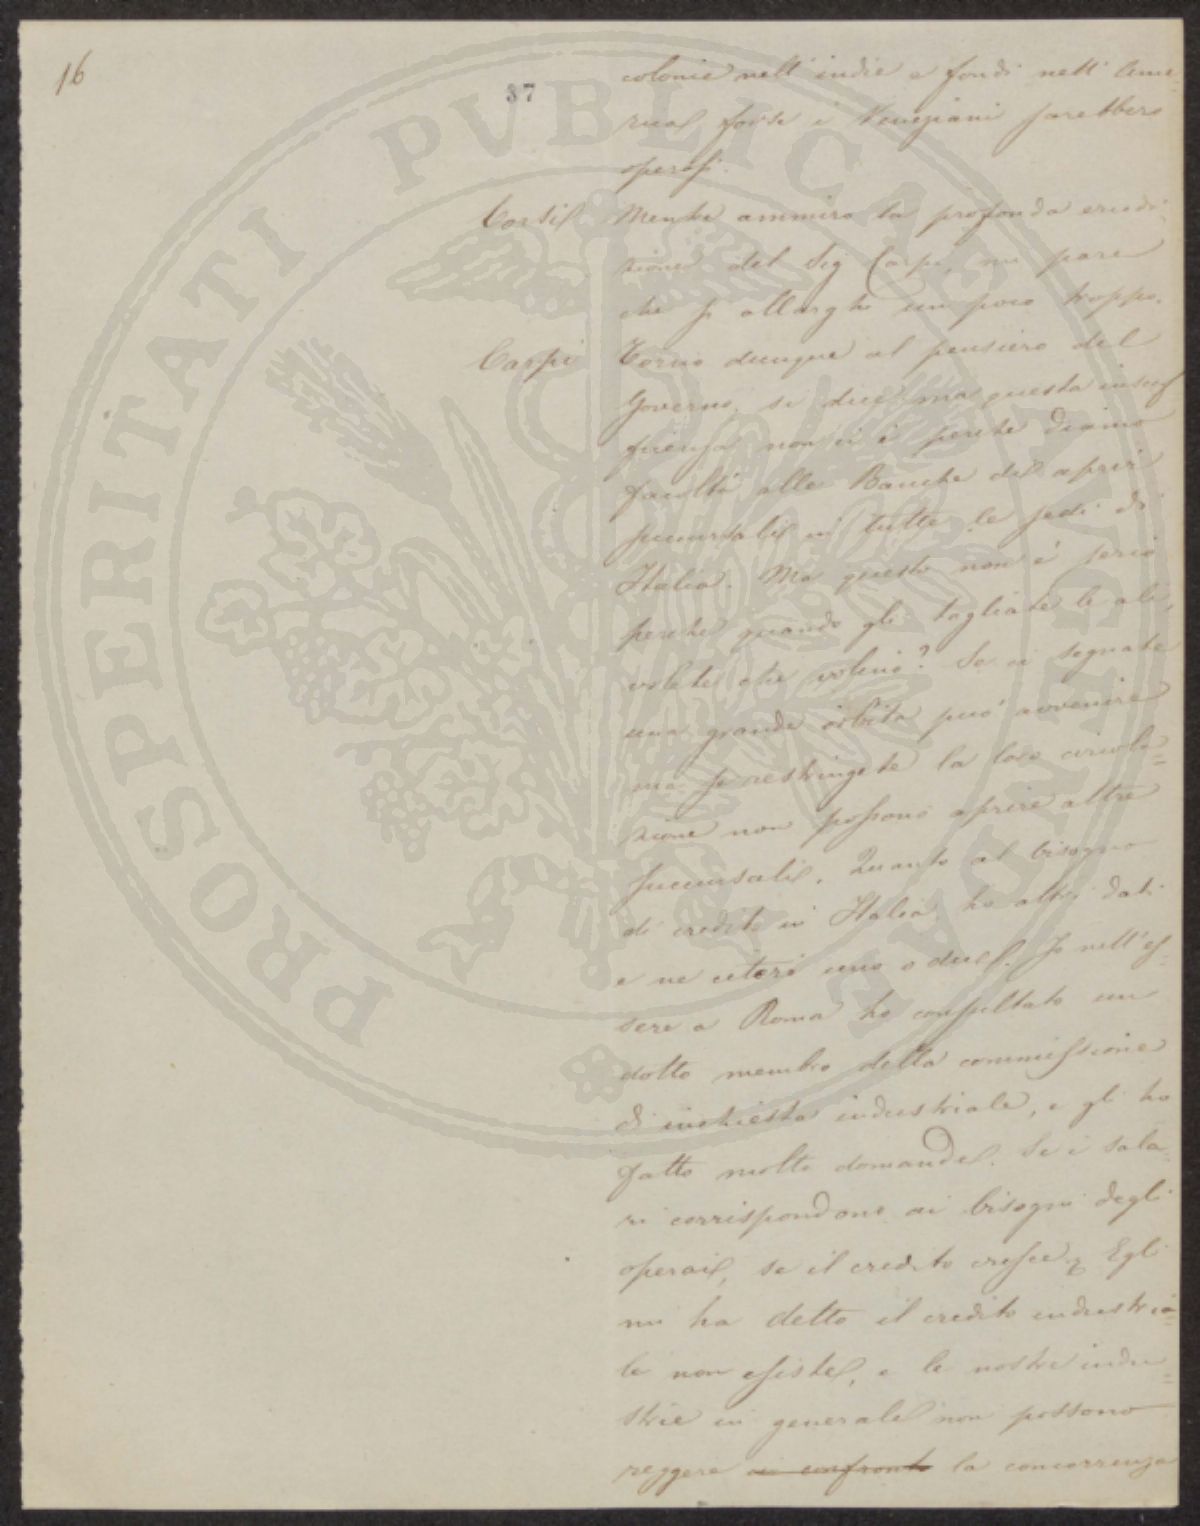 16
37
colonie nell' indie e fondi nell' Ame
rica forse i Veneziani sarebbero
operosi.
Corsi Mentre ammiro la profonda erudi
zione del Sig Carpi, mi pare
che si allarghi un poco troppo.
Carpi Torno dunque al pensiero del
Governo. si dice ma questa insuf
ficienza non ci è perchè diamo
facoltà alle Banche di aprir
succursali in tutte le sedi di
Italia. Ma questo non è serio
perchè quando gli tagliate le ali,
volete che volino? Se ci segnate
una grande orbita può avvenire
ma se restringete la loro circola=
zione non possono aprire altre
succursali. Quanto al bisogno
di credito in Italia ho altri dati
e ne citerò uno o due. Io nell'es=
sere a Roma ho consultato un
dotto membro della commissione
di inchiesta industriale, e gli ho
fatto molte domande. Se i sala=
ri corrispondono ai bisogni degli
operai, se il credito cresce; Egli
mi ha detto il credito industria=
le non esiste, e le nostre indu=
strie in generale non possono
reggere ai confronto la concorrenza
PROSPERITATI PVBLICAE AVGENDAE